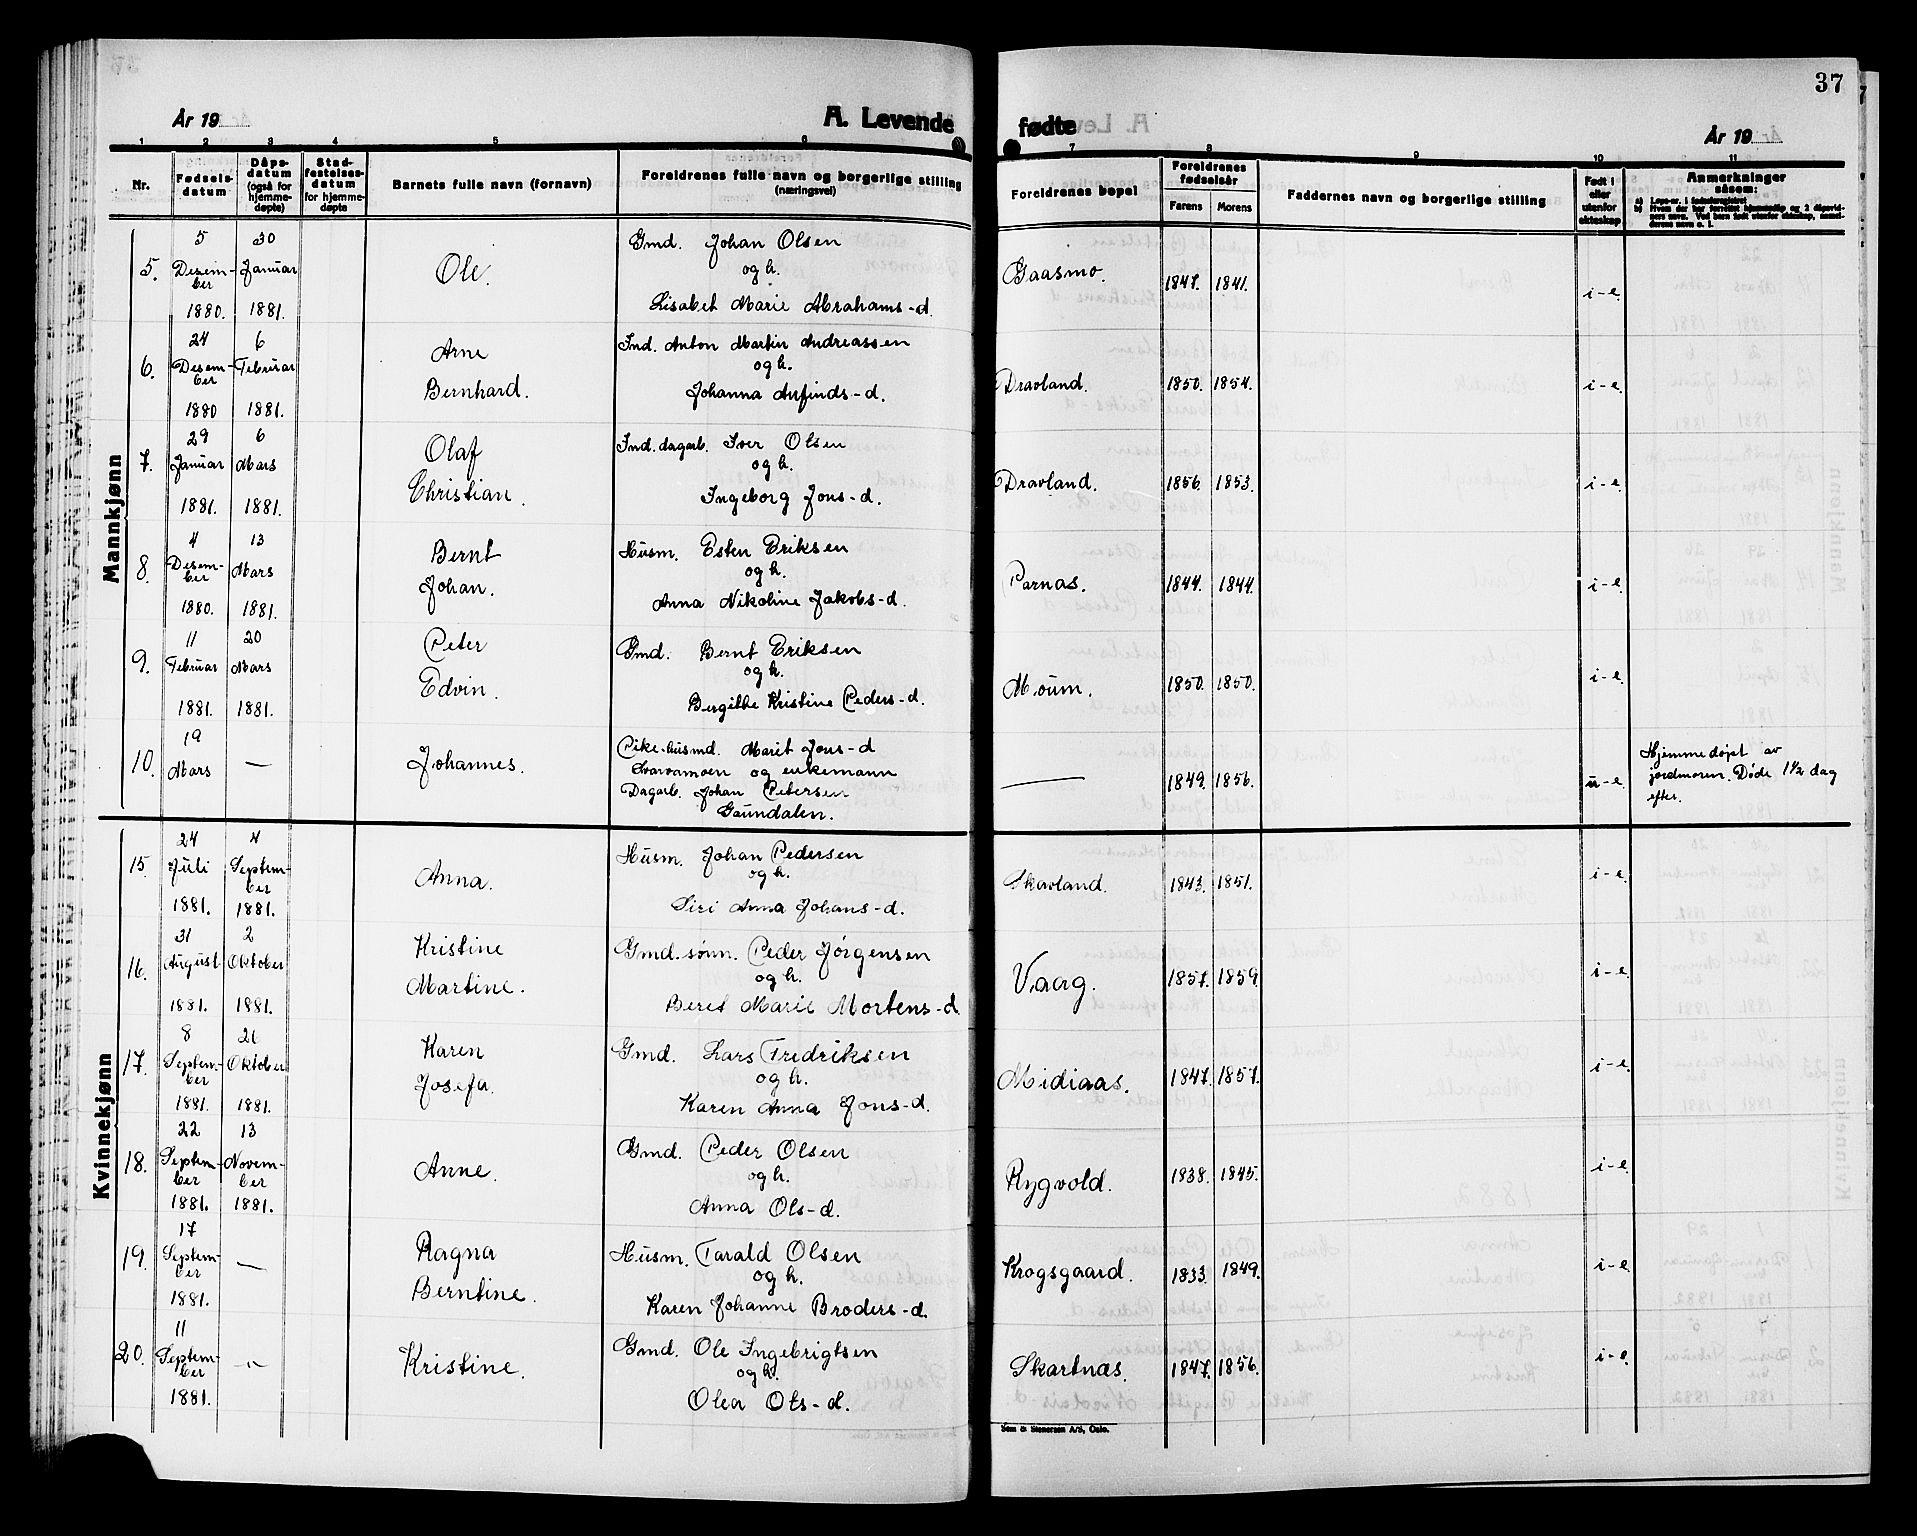 37
År 19
A. Levende
fødte
År 19
1 2 3 4 5 6 7 8 9 10 11
Nr.
Fødsels-
datum
Dåps-
datum
(også for
hjemme-
døpte)
Stad-
festelses-
datum
for hjemme-
døpte
Barnets fulle navn (fornavn)
Foreldrenes fulle navn og borgerlige stilling
(næringsvei)
Foreldrenes bopel
Foreldrenes
fødselsår
Farens Morens
Faddernes navn og borgerlige stilling
Født i
eller
utenfor
ekteskap
Anmerkninger
såsom:
a) Løpe-nr. i fødselsregistret
Mannkjønn
5. 5 Desem-
ber
1880.
30
Januar
1881.
Ole.
Gmd. Johan Olsen
og h.
Lisabet Marie Abrahams-d.
Gaasmo. 1847. 1841. i-e.
6. 24
Desem-
ber
1880
6
Februar
1881.
Arne
Bernhard.
Ind. Anton Martin Andreassen
og h.
Johanna Arfinds-d.
Dravland. 1850. 1854. i-e.
7. 29
Januar
1881.
6
Mars
1881.
Olaf
Christian.
Ind. dagarb. Iver Olsen
og h.
Ingeborg Jons-d.
Dravland. 1856. 1853. i-e.
8. 4
Desem-
ber
1880.
13
Mars
1881.
Bernt
Johan.
Husm. Esten Eriksen
og h.
Anna Nikoline Jakobs-d.
Parnas. 1844. 1844. i-e.
9. 11
Februar
1881.
20
Mars
1881.
Peter
Edvin.
Gmd. Bernt Eriksen
og h.
Bergitte Kristine Peders-d.
Moum. 1850. 1850. i-e.
10. 19
Mars
—
Johannes.
Pike-husmd. Marit Jons-d
Svarvamoen og enkemann
Dagarb. Johan Petersen
Gaundalen.
— 1849. 1856. u-e.
Hjemmedøpt av
jordmoren. Døde 1 1/2 dag
efter.
Kvinnekjønn
15. 24
Juli
1881.
4
Septem-
ber
1881.
Anna.
Husm. Johan Pedersen
og h.
Siri Anna Johans-d.
Skavland. 1843. 1851. i-e.
16. 31
August
1881.
2
Oktober
1881.
Kristine
Martine.
Gmd. sønn. Peder Jørgensen
og h.
Beret Marie Mortens-d
Vaag. 1857. 1859. i-e.
17. 8
Septem-
ber
1881.
21
Oktober
1881.
Karen
Josefa.
Gmd. Lars Fredriksen
og h.
Karen Anna Jons-d.
Midiaas. 1847. 1857. i-e.
18. 22
Septem-
ber
1881.
13
Novem-
ber
1881.
Anne.
Gmd. Peder Olsen
og h.
Anna Ols-d.
Rygvold. 1838. 1845. i-e.
19. 17
Septem-
ber
1881.
—
Ragna
Berntine.
Husm. Tarald Olsen
og h.
Karen Johanne Broders-d.
Krogsgaard. 1833. 1849. i-e.
20. 11
Septem-
ber
1881.
-"-
Kristine.
Gmd. Ole Ingebrigtsen
og h.
Olea Ols-d.
Skartnæs. 1847. 1856. i-e.
Sem & Stenersen A/S, Oslo.